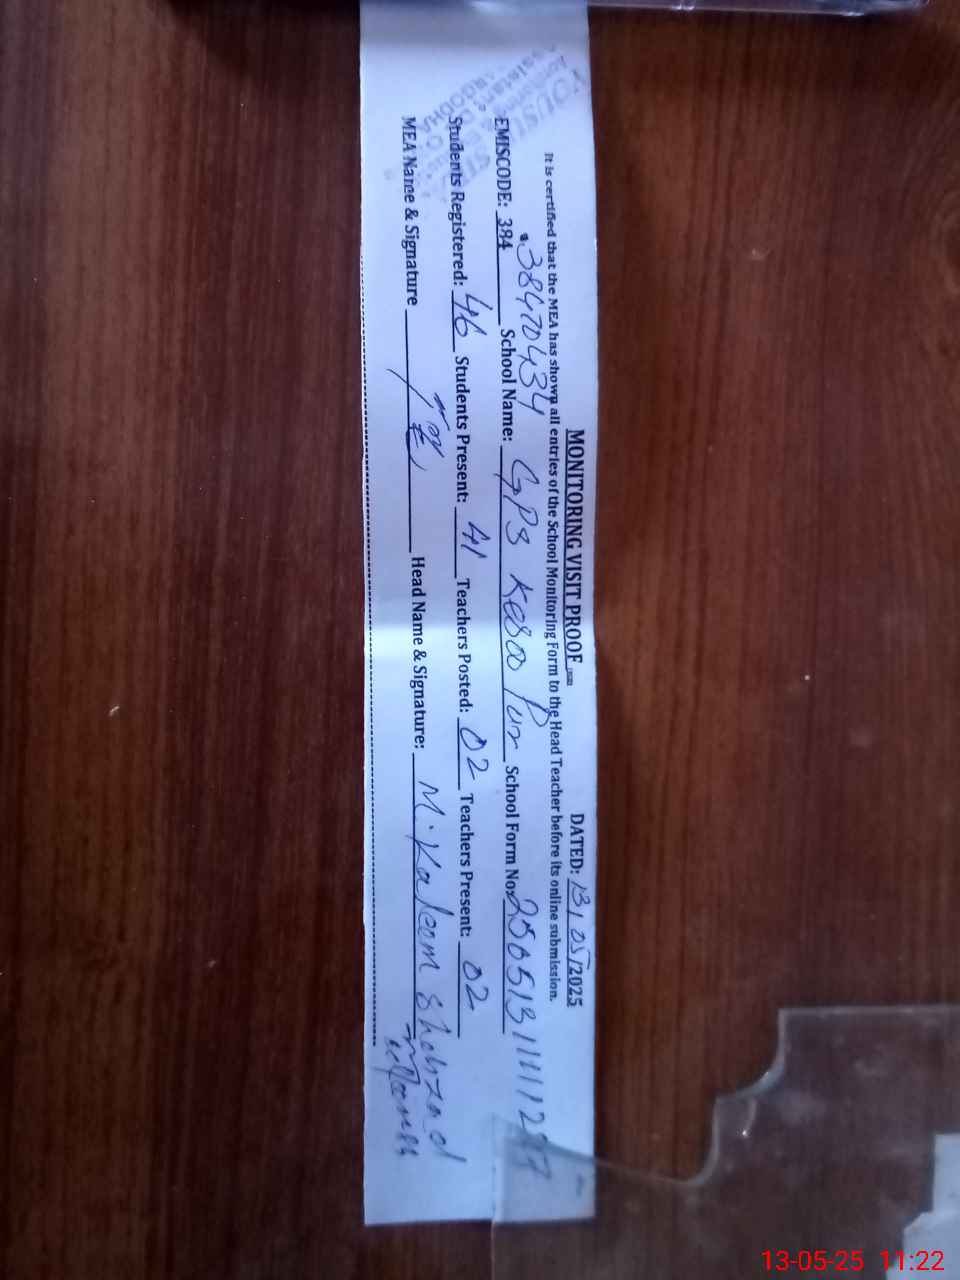 MONITORING VISIT PROOF DATED: 13/05/2025
It is certified that the MEA has shown all entries of the School Monitoring Form to the Head Teacher before its online submission.
38470434
EMISCODE: 384 School Name: GPS Kesoo Pur School Form No:
Students Registered: 46 Students Present: 41 Teachers Posted: 02 Teachers Present: 02
MEA Name & Signature Head Name & Signature: M. Kaleem Shahzad
SARGODHA
13-05-25 11:22